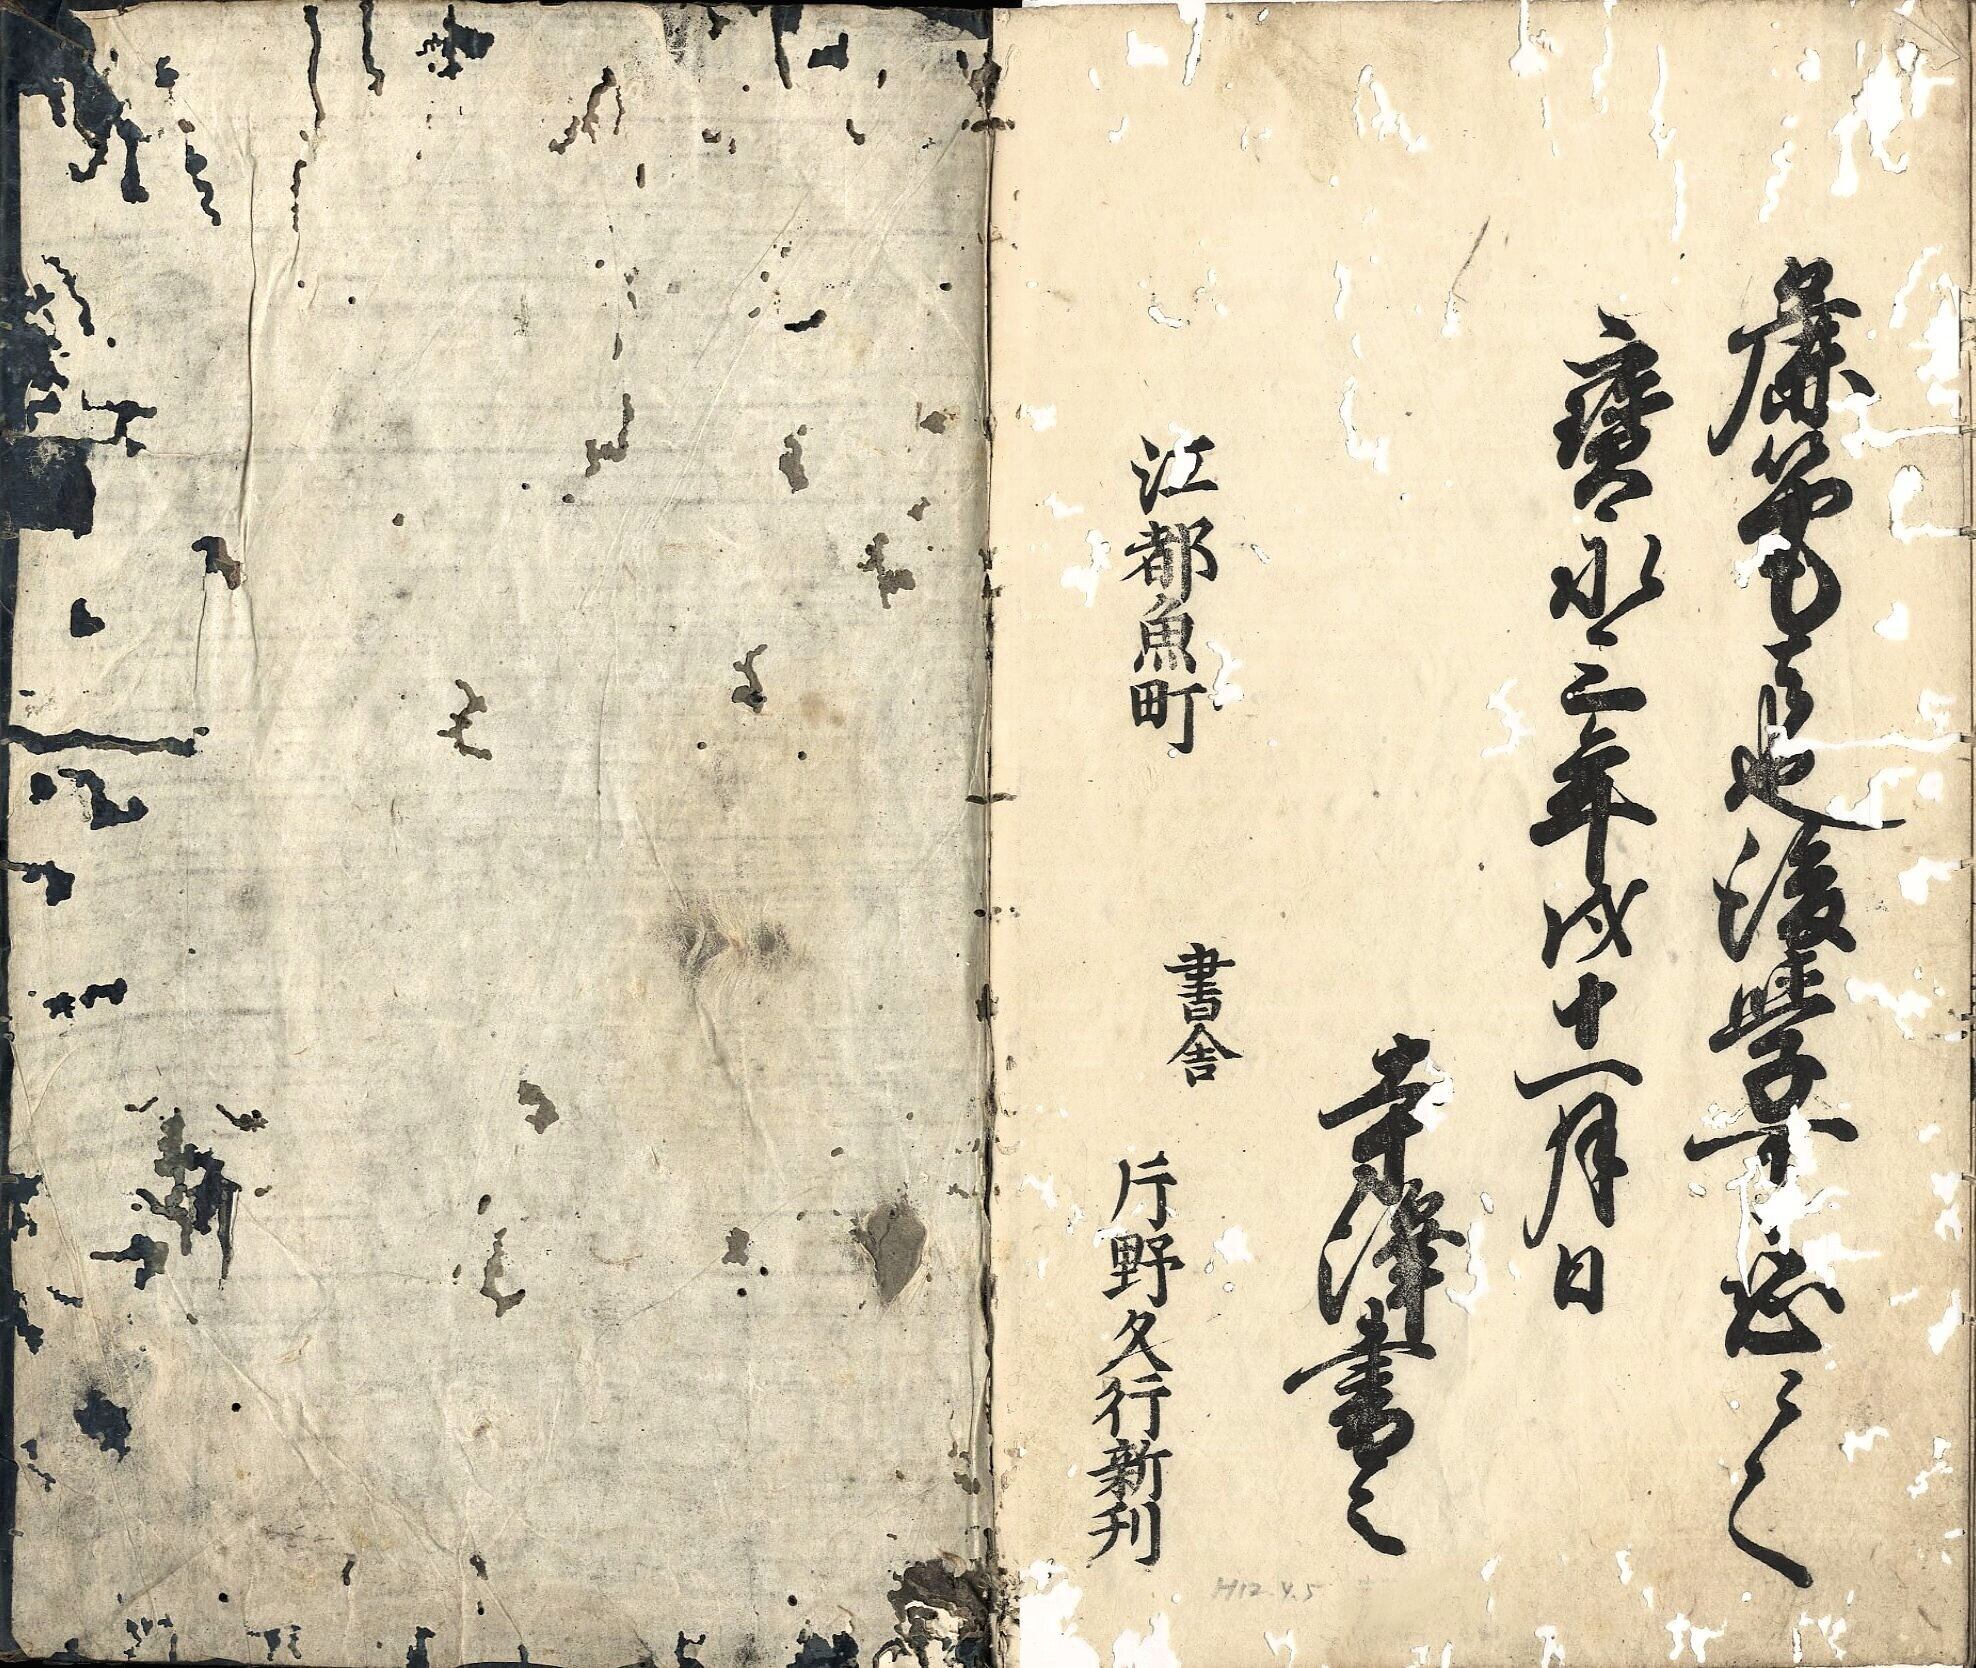 筆 後學 恐々々
寳永三年戌十一月日
寺澤書之
江都魚町 書舎 片野久行新刊
H12.4.5